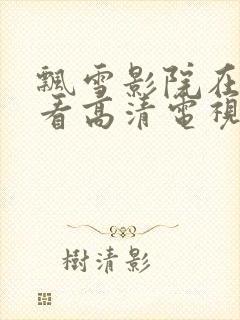 飄雪影院在
看高清電視
樹清影